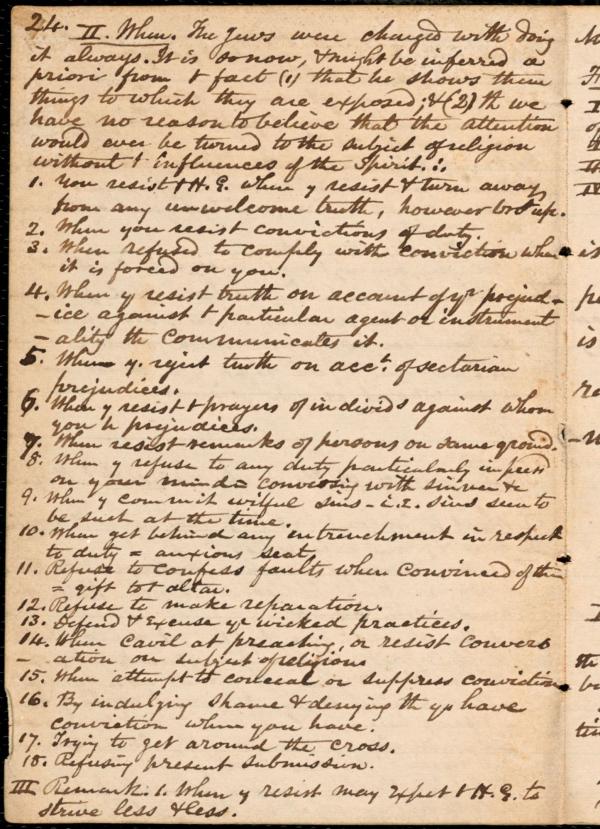 24. II. When. The Jews were charged with doing
it always. It is so now, & might be inferred a
priori from t fact (1) that he shows them
things to which they are exposed; & (2) th we
have no reason to believe that the attention
would ever be turned to the subject of religion
without t influences of the Spirit. ∴
1. You resist t H. G. when y resist & turn away
from any unwelcome truth, however brot up.
2. When you resist convictions of duty.
3. When refused to comply with conviction when
it is forced on you.
4. When y resist truth on account of yr prejud-
-ice against t particular agent or instrument
-ality th communicates it.
5. When y. reject truth on acct. of sectarian
prejudices.
6. When y resist t prayers of individs against whom
you h prejudices.
7. When resist remarks of persons on same ground.
8. When y refuse to any duty particularly impressd
on your mind = conversing with sinner &c
9. When y commit wilful sins - i.e. sins seen to
be such at the time.
10. When get behind any intrenchment in respect
to duty = anxious seat.
11. Refuse to confess faults when convinced of them
= gift to t altar.
12. Refuse to make reparation.
13. Defend & Excuse yr wicked practices.
14. When cavil at preaching, or resist convers
-ation on subject of religion
15. When attempt to conceal or suppress conviction
16. By indulging shame & denying th yu have
conviction when you have.
17. Trying to get around the cross.
18. Refusing present submission.
III Remark. 1. When y resist may expect t H. G. to
strive less & less.